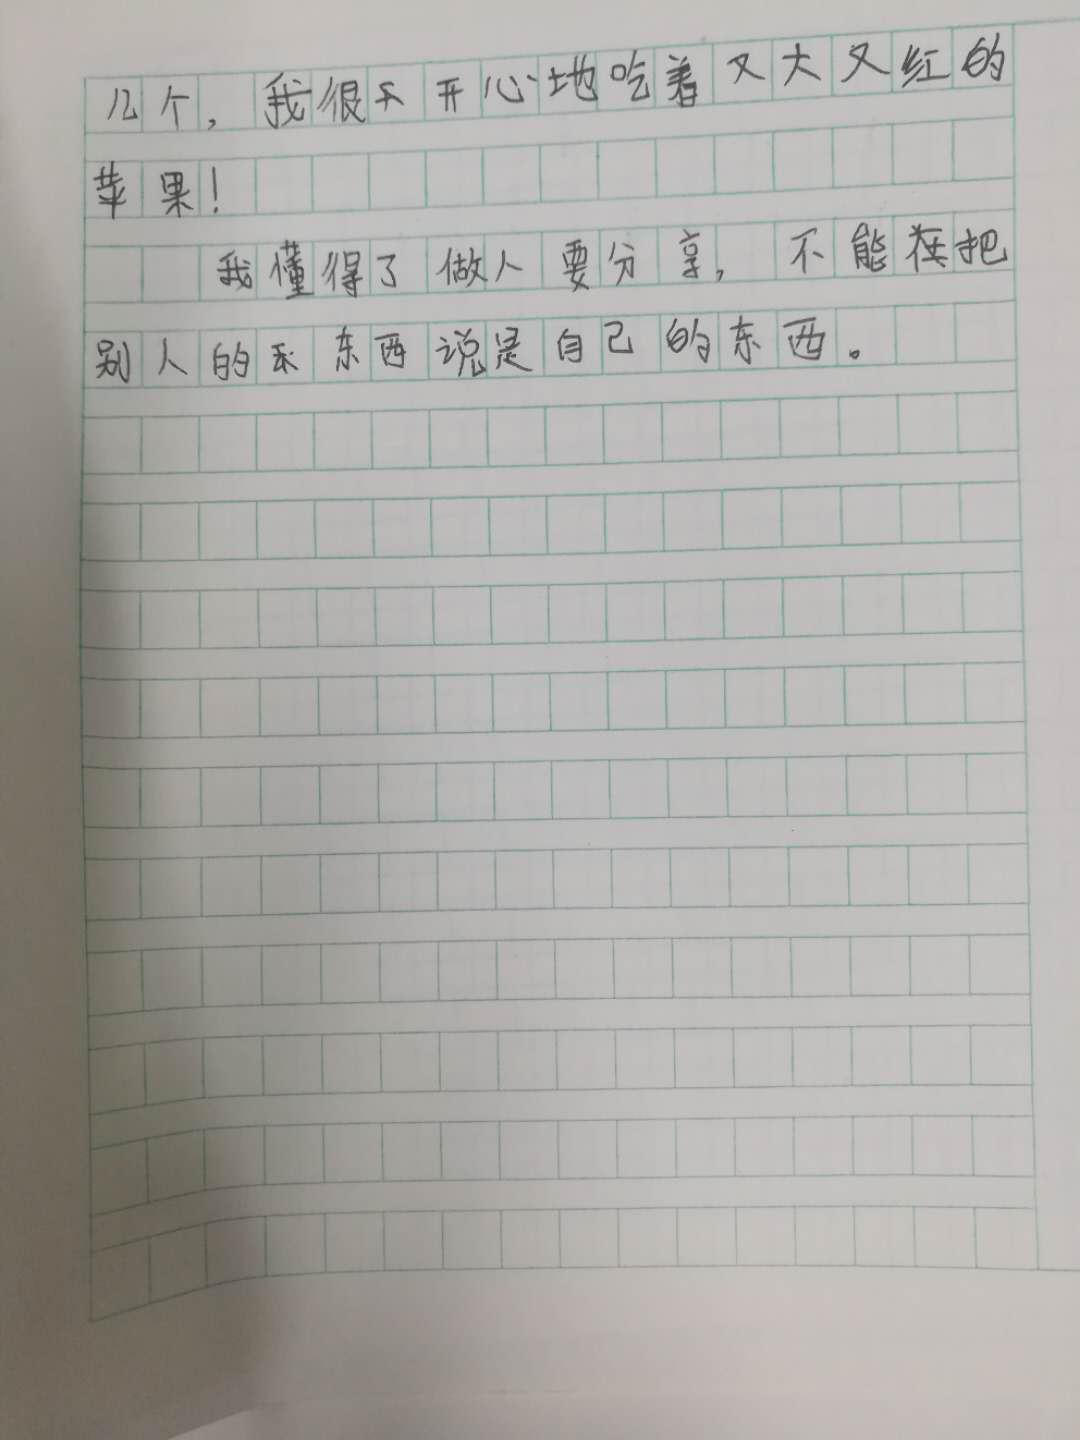 几个，我很不开心地吃着又大又红的
苹果！
我懂得了做人要分享，不能在把
别人的东西说是自己的东西。